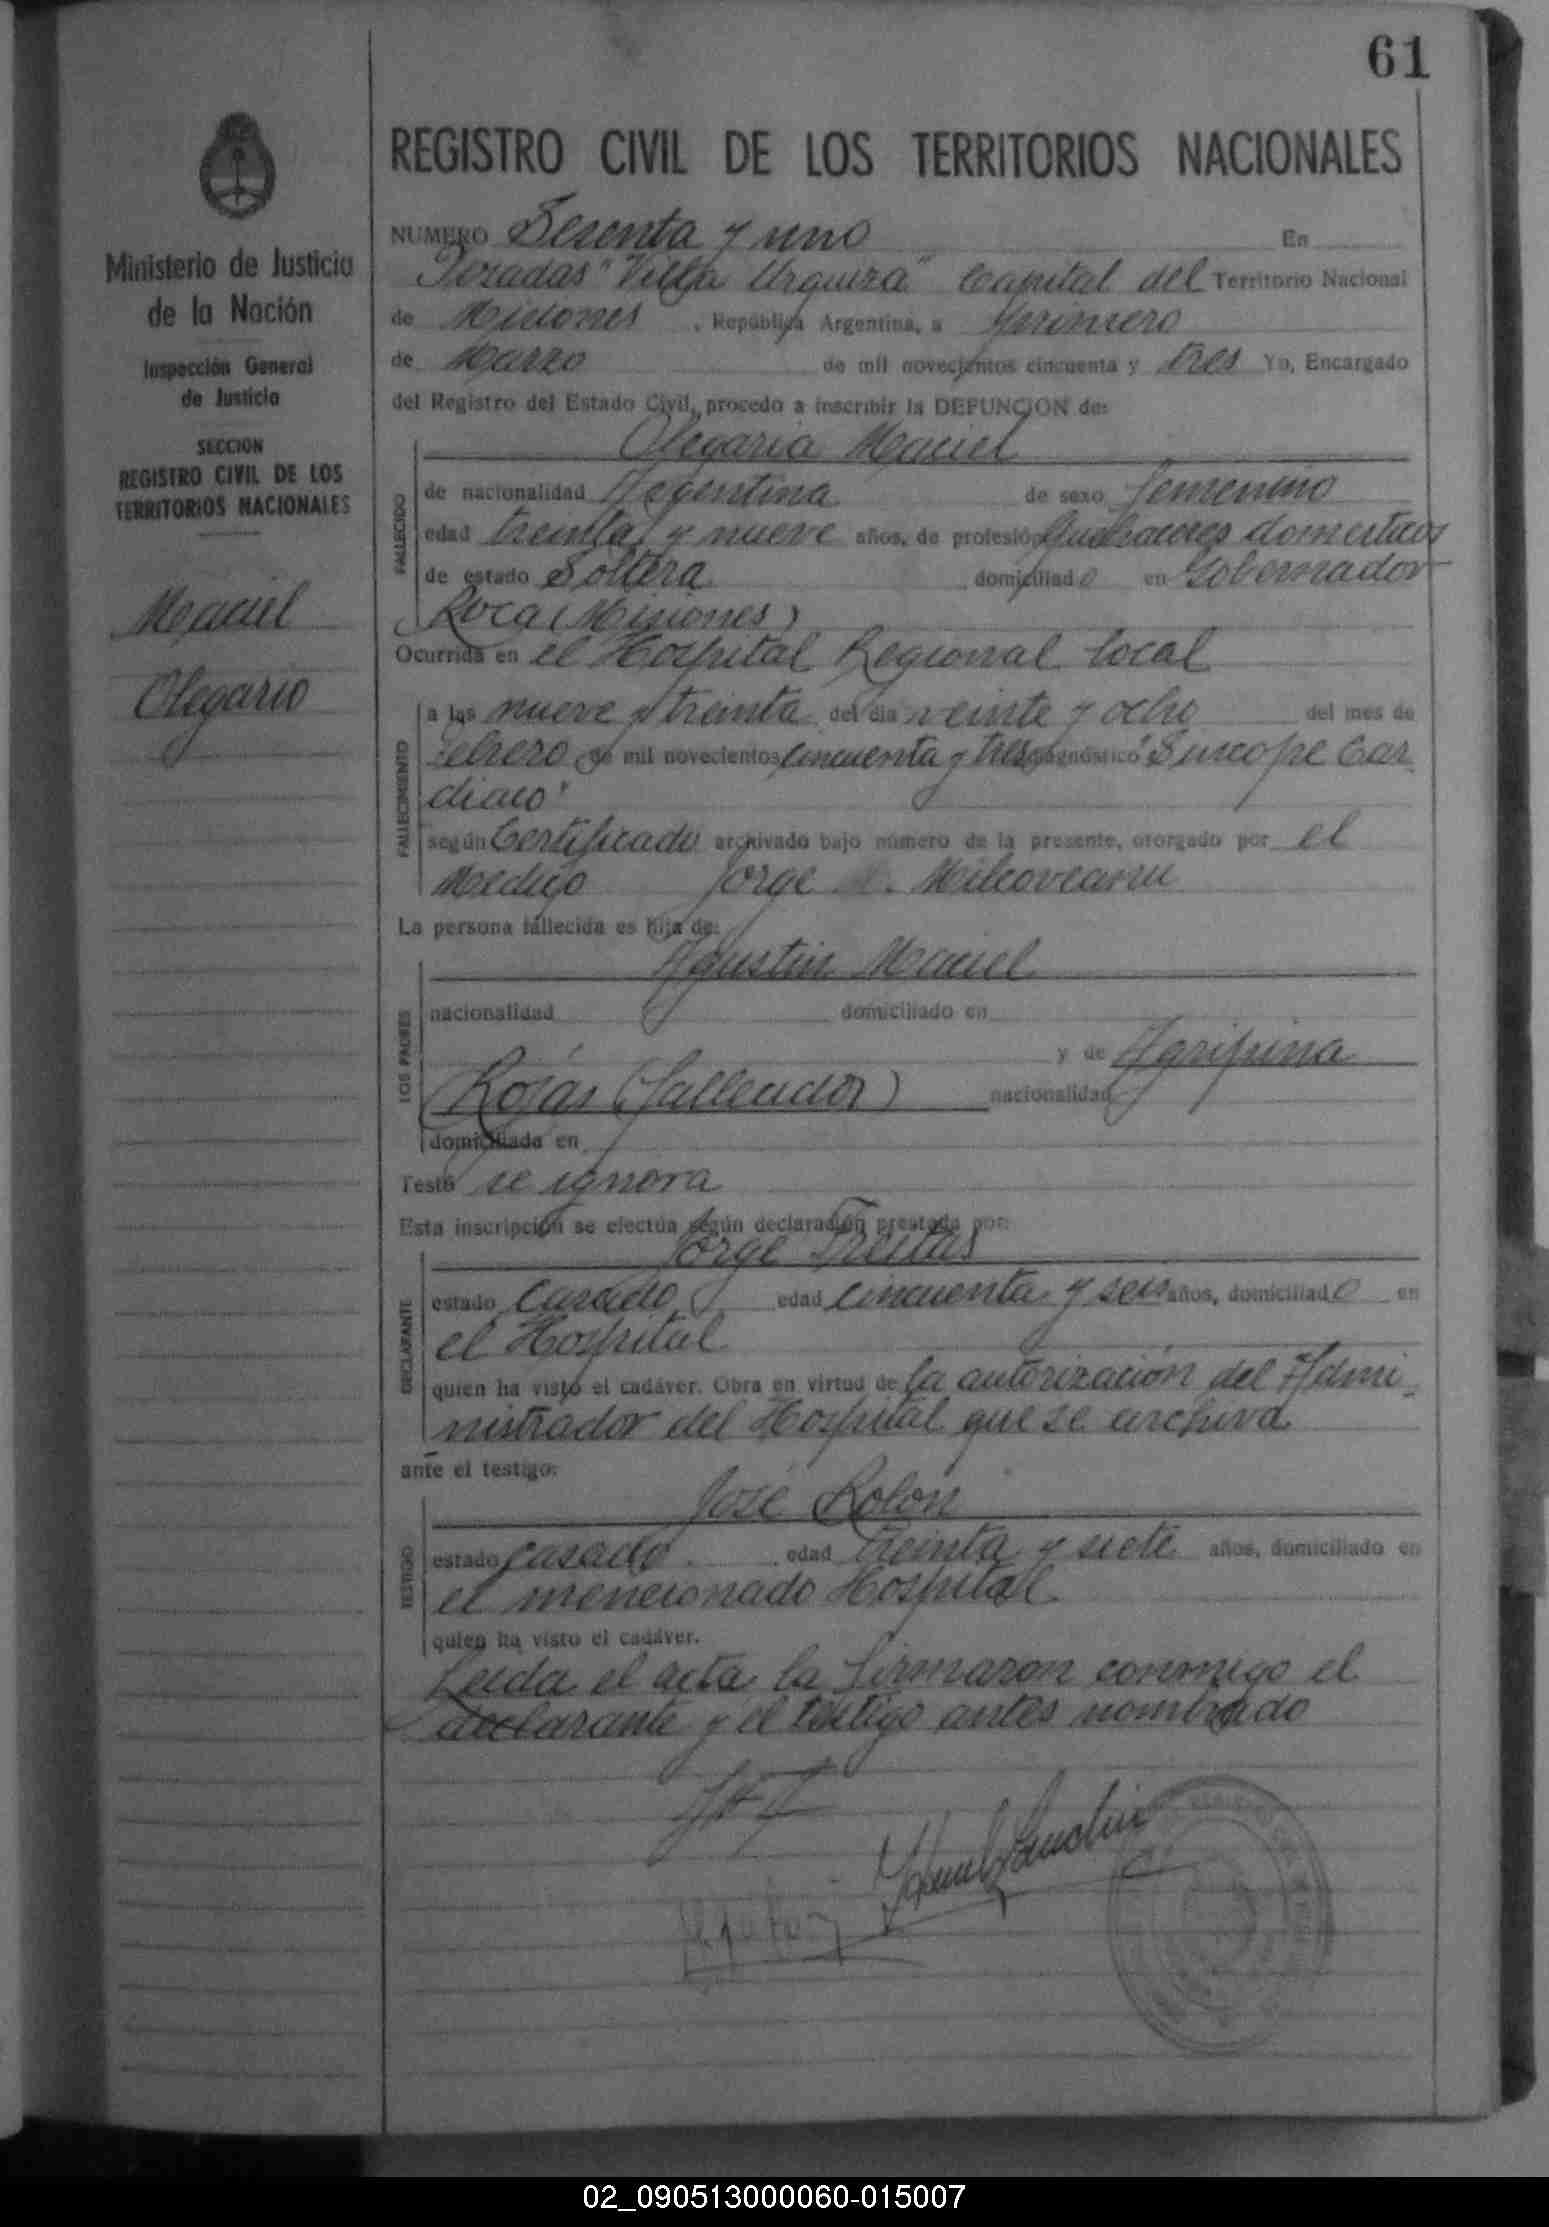 61
REGISTRO CIVIL DE LOS TERRITORIOS NACIONALES
Ministerio de Justicia
de la Nación
Inspección General
de Justicia
SECCION
REGISTRO CIVIL DE LOS
TERRITORIOS NACIONALES
Maciel
Olegario
NUMERO Sesenta y uno En
Posadas "Villa Urquiza" Capital del Territorio Nacional
de Misiones, República Argentina, a primero
de Marzo de mil novecientos cincuenta y tres Yo, Encargado
del Registro del Estado Civil, procedo a inscribir la DEFUNCION de:
Olegaria Maciel
FALLECIDO
de nacionalidad Argentina de sexo femenino
edad treinta y nueve años, de profesión Quehaceres domesticos
de estado Soltera domiciliado en Gobernador
Roca (Misiones)
Ocurrida en el Hospital Regional local
FALLECIMIENTO
a las nueve y treinta del dia veinte y ocho del mes de
Febrero de mil novecientos cincuenta y tres diagnóstico "Sincope Car-
diaco"
según Certificado archivado bajo número de la presente, otorgado por el
Medico Jorge Milcoveanu
La persona fallecida es hija de:
LOS PADRES
Agustin Maciel
nacionalidad domiciliado en
y de Agripina
Rojas (fallecidos) nacionalidad
domiciliada en
Testó se ignora
Esta inscripción se efectúa según declaración prestada por:
DECLARANTE
Jorge Freitas
estado casado edad cincuenta y seis años, domiciliado en
el Hospital
quien ha visto el cadáver. Obra en virtud de la autorización del Admi-
nistrador del Hospital que se archiva
ante el testigo:
TESTIGO
José Rolon
estado casado edad treinta y siete años, domiciliado en
el mencionado Hospital
quien ha visto el cadáver.
Leida el acta la firmaron conmigo el
declarante y el testigo antes nombrado
02_090513000060-015007